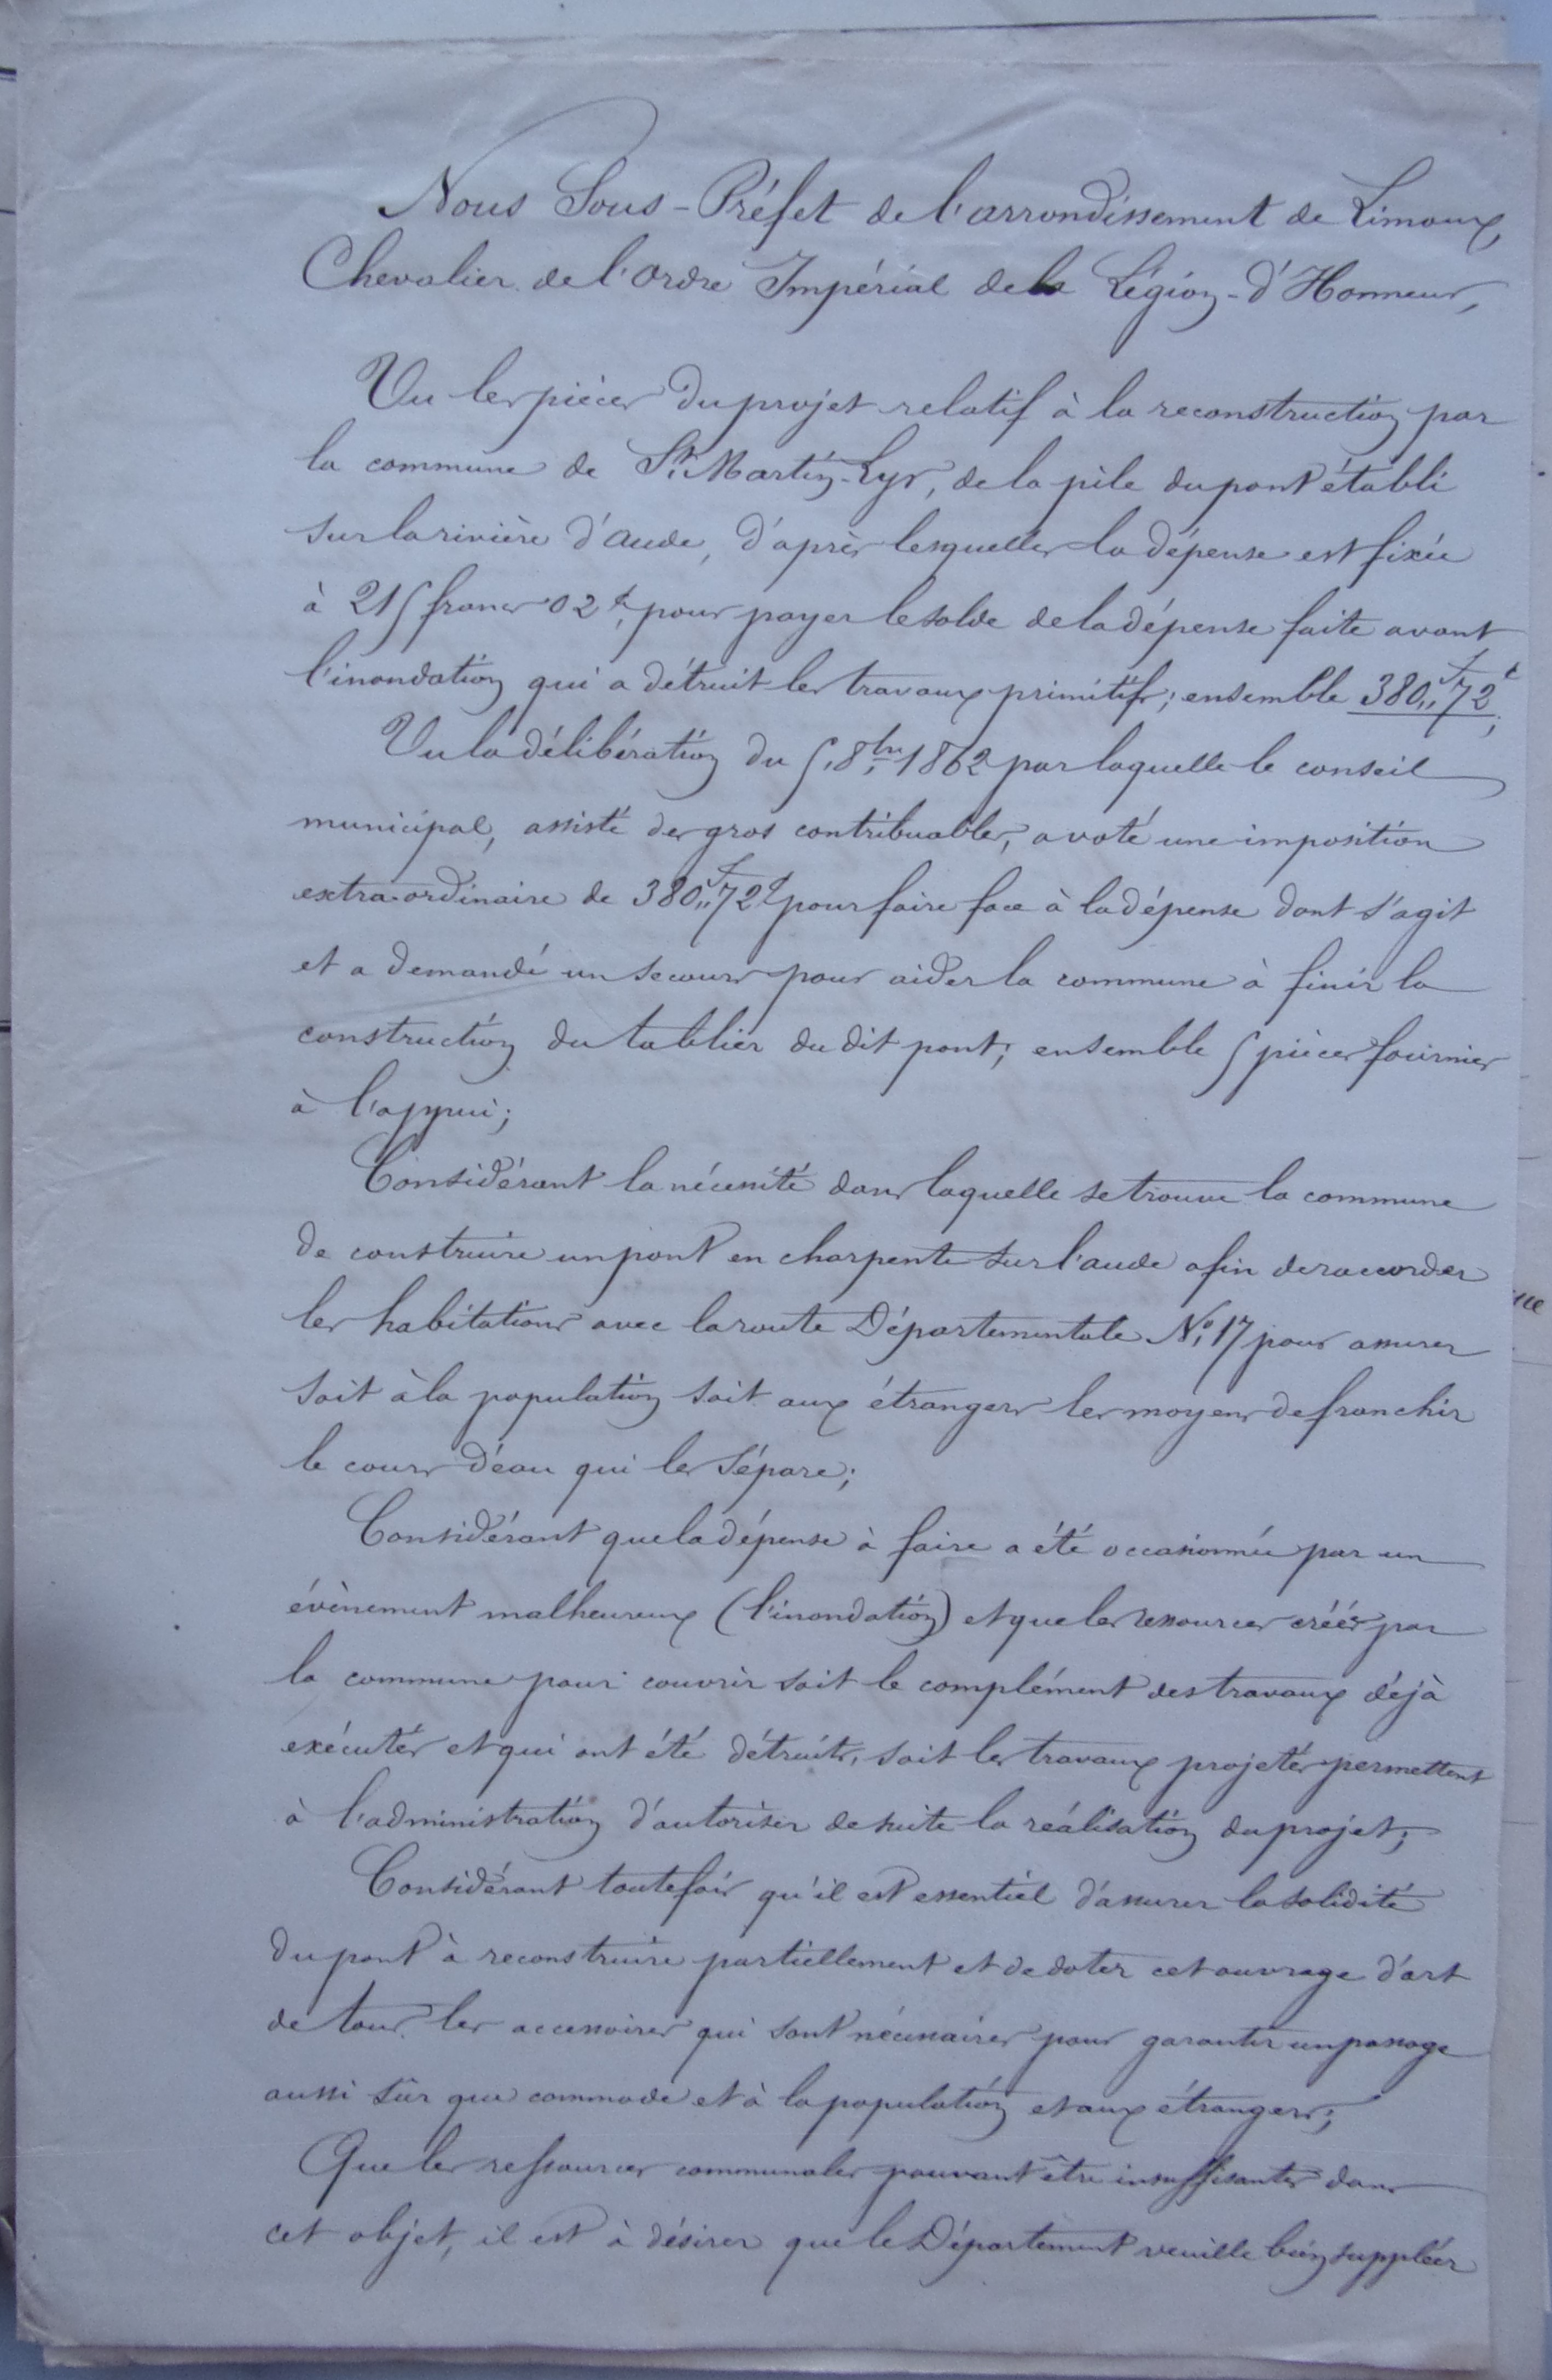 Nous Sous-Préfet de l'arrondissement de Limoux,
Chevalier de l'Ordre Impérial de la Légion-d'Honneur,
Vu les pièces du projet relatif à la reconstruction par
la commune de St. Martin-Lys, de la pile du pont établi
sur la rivière d'aude, d'après lesquelles la dépense est fixée
à 215 francs 02 c, pour payer le solde de la dépense faite avant
l'inondation qui a détruit les travaux primitifs; ensemble 380,,f 72c;
Vu la délibération du 5. 8bre 1862 par laquelle le conseil
municipal, assisté des gros contribuables, a voté une imposition
extraordinaire de 380,,f 72c pour faire face à la dépense dont s'agit
et a demandé un secours pour aider la commune à finir la
construction du tablier du dit pont; ensemble 5 pièces fournies
à l'appui;
Considérant la nécessité dans laquelle se trouve la commune
de construire un pont en charpente sur l'aude afin de raccorder
les habitations avec la route Départementale No. 17 pour assurer
soit à la population soit aux étrangers les moyens de franchir
le cours d'eau qui les sépare;
Considérant que la dépense à faire a été occasionnée par un
évènement malheureux (l'inondation) et que les ressources créées par
la commune pour couvrir soit le complément des travaux déjà
exécutés et qui ont été détruits, soit les travaux projetés permettent
à l'administration d'autoriser de suite la réalisation du projet;
Considérant toutefois qu'il est essentiel d'assurer la solidité
du pont à reconstruire partiellement et de doter cet ouvrage d'art
de tous les accessoires qui sont nécessaires pour garantir un passage
aussi sûr que commode et à la population et aux étrangers;
Que les ressources communales pouvant être insuffisantes dans
cet objet, il est à désirer que le Département veuille bien suppléer